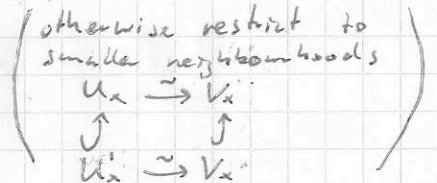 (otherwise restrict to
smaller neighbourhoods
Uₓ ⥲ Vₓ
↪ ↪
U'ₓ ⥲ Vₓ)